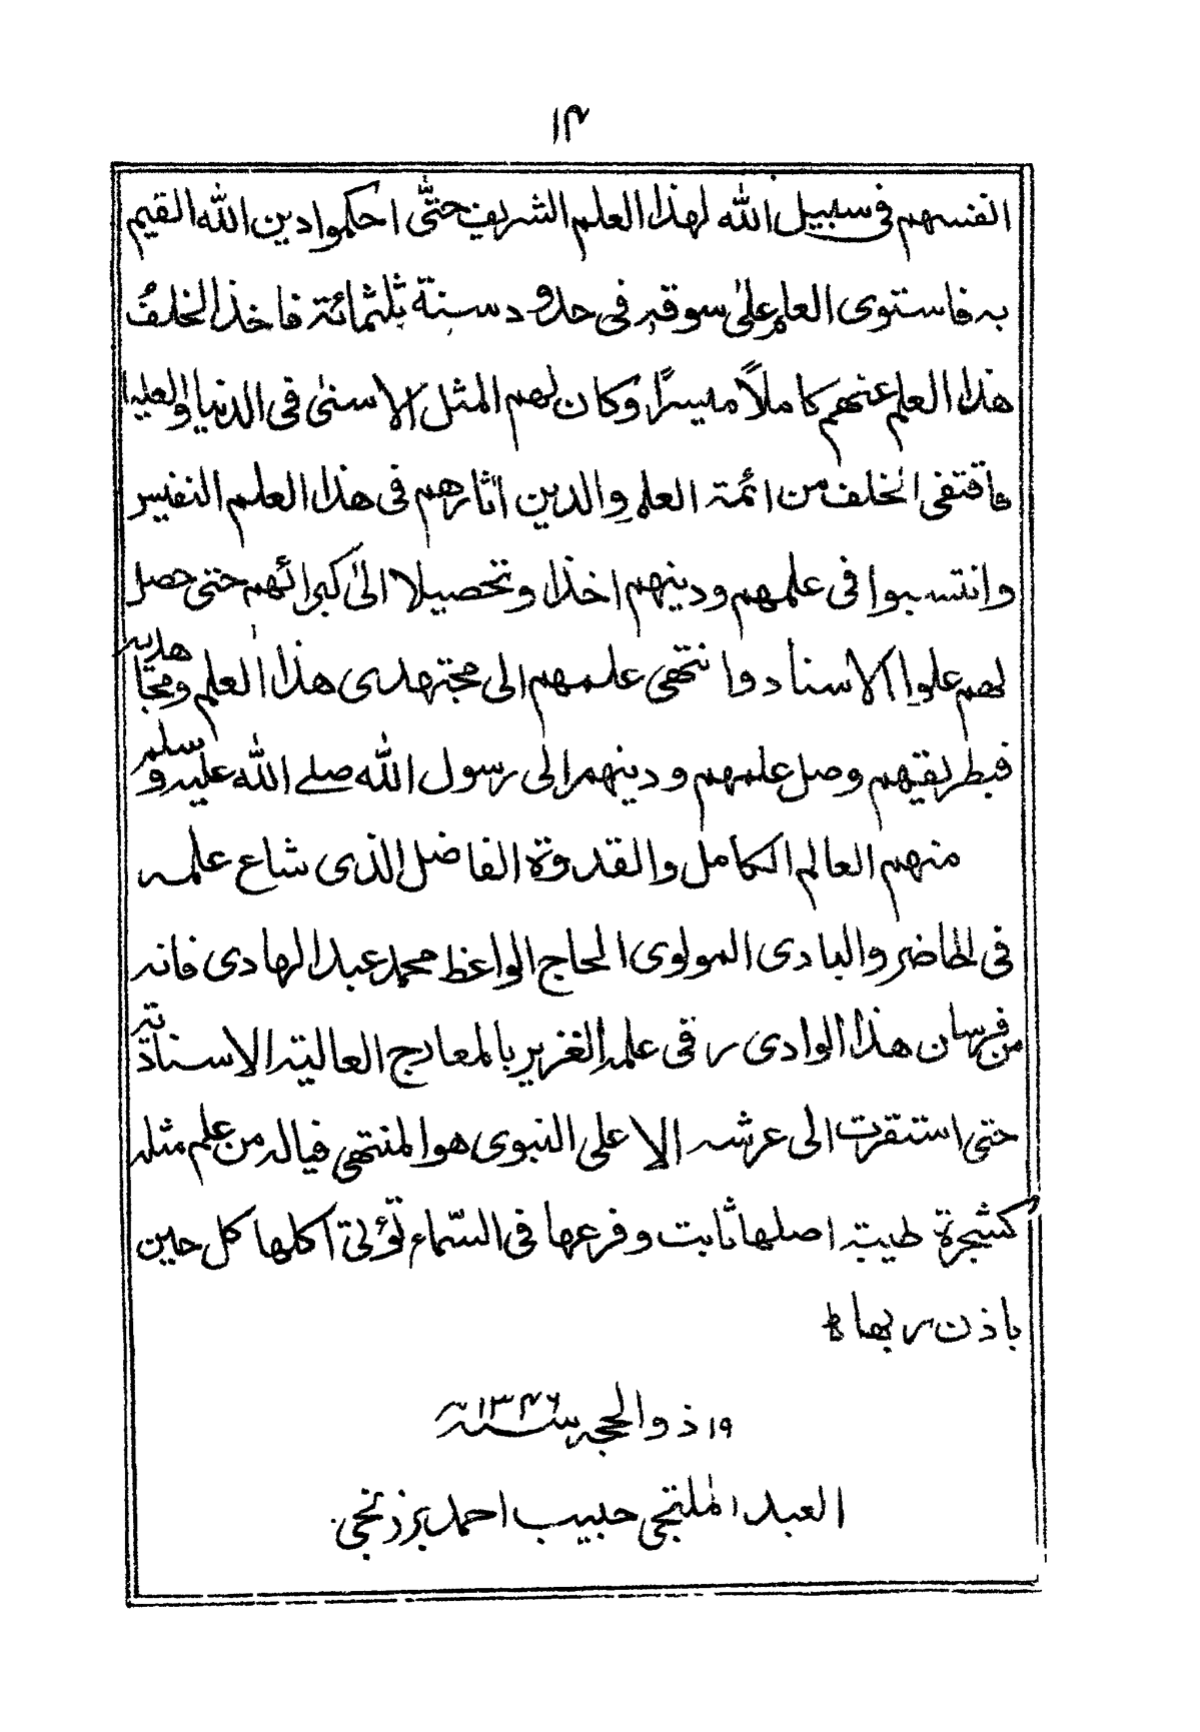 ۱۴
انفسهم فی سبیل الله لهذا العلم الشریف حتّٰی احکموا دین الله القیم
به فاستوی العلم علیٰ سوقه فی حدود سنة ثلثمائة فاخذ الخلفُ
هذا العلم عنهم کاملاً میسرًا وکان لهم المثل الاسنیٰ فی الدنیا والعلیا
فاقتفی الخلف من ائمة العلم والدین اٰثارهم فی هذا العلم النفیس
وانتسبوا فی علمهم ودینهم اخذا وتحصیلا الیٰ کبرائهم حتی حصل
لهم علوا الاسناد وانتهی علمهم الی مجتهدی هذا العلم ومجاهدیه
فبطریقهم وصل علمهم ودینهم الی رسول الله صلے الله علیه وسلم
منهم العالم الکامل والقدوة الفاضل الذی شاع علمه
فی الحاضر والبادی المولوی الحاج الواعظ محمد عبد الهادی فانه
من فرسان هذا الوادی رقی علمه الغزیر بالمعارج العالیة الاسنادیة
حتی استقرت الی عرشه الاعلی النبوی هو المنتهی فیاله من علم مثله
کشجرة طیبة اصلها ثابت وفرعها فی السّماء تؤتی اکلها کل حین
باذن ربها ط
۱۹ ذوالحجه سنة ۱۳۴۶
العبد الملتجی حبیب احمد برزنجی